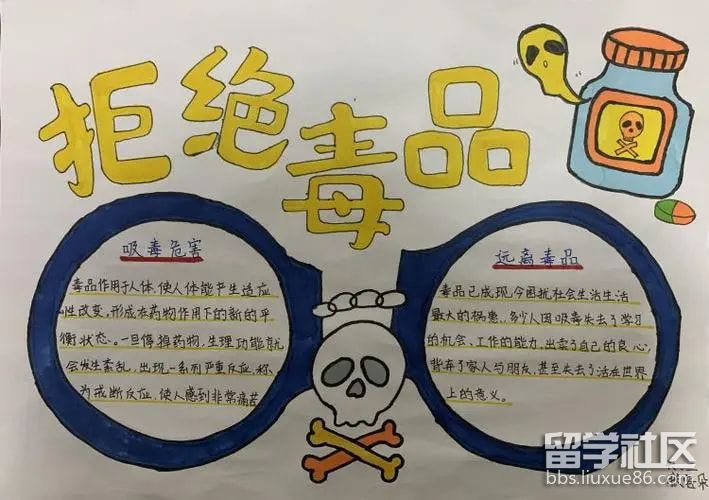 拒绝毒品
吸毒危害
毒品作用于人体,使人体能产生适应
性改变,形成在药物作用下的新的平
衡状态。一旦停掉药物,生理功能就
会发生紊乱,出现一系列严重反应,称
为戒断反应,使人感到非常痛苦
远离毒品
毒品已成现今困扰社会生活生活
最大的祸患,多少人因吸毒失去了学习
的机会、工作的能力,出卖了自己的良心,
背弃了家人与朋友,甚至失去了活在世界
上的意义。
留学社区
bbs.liuxue86.com